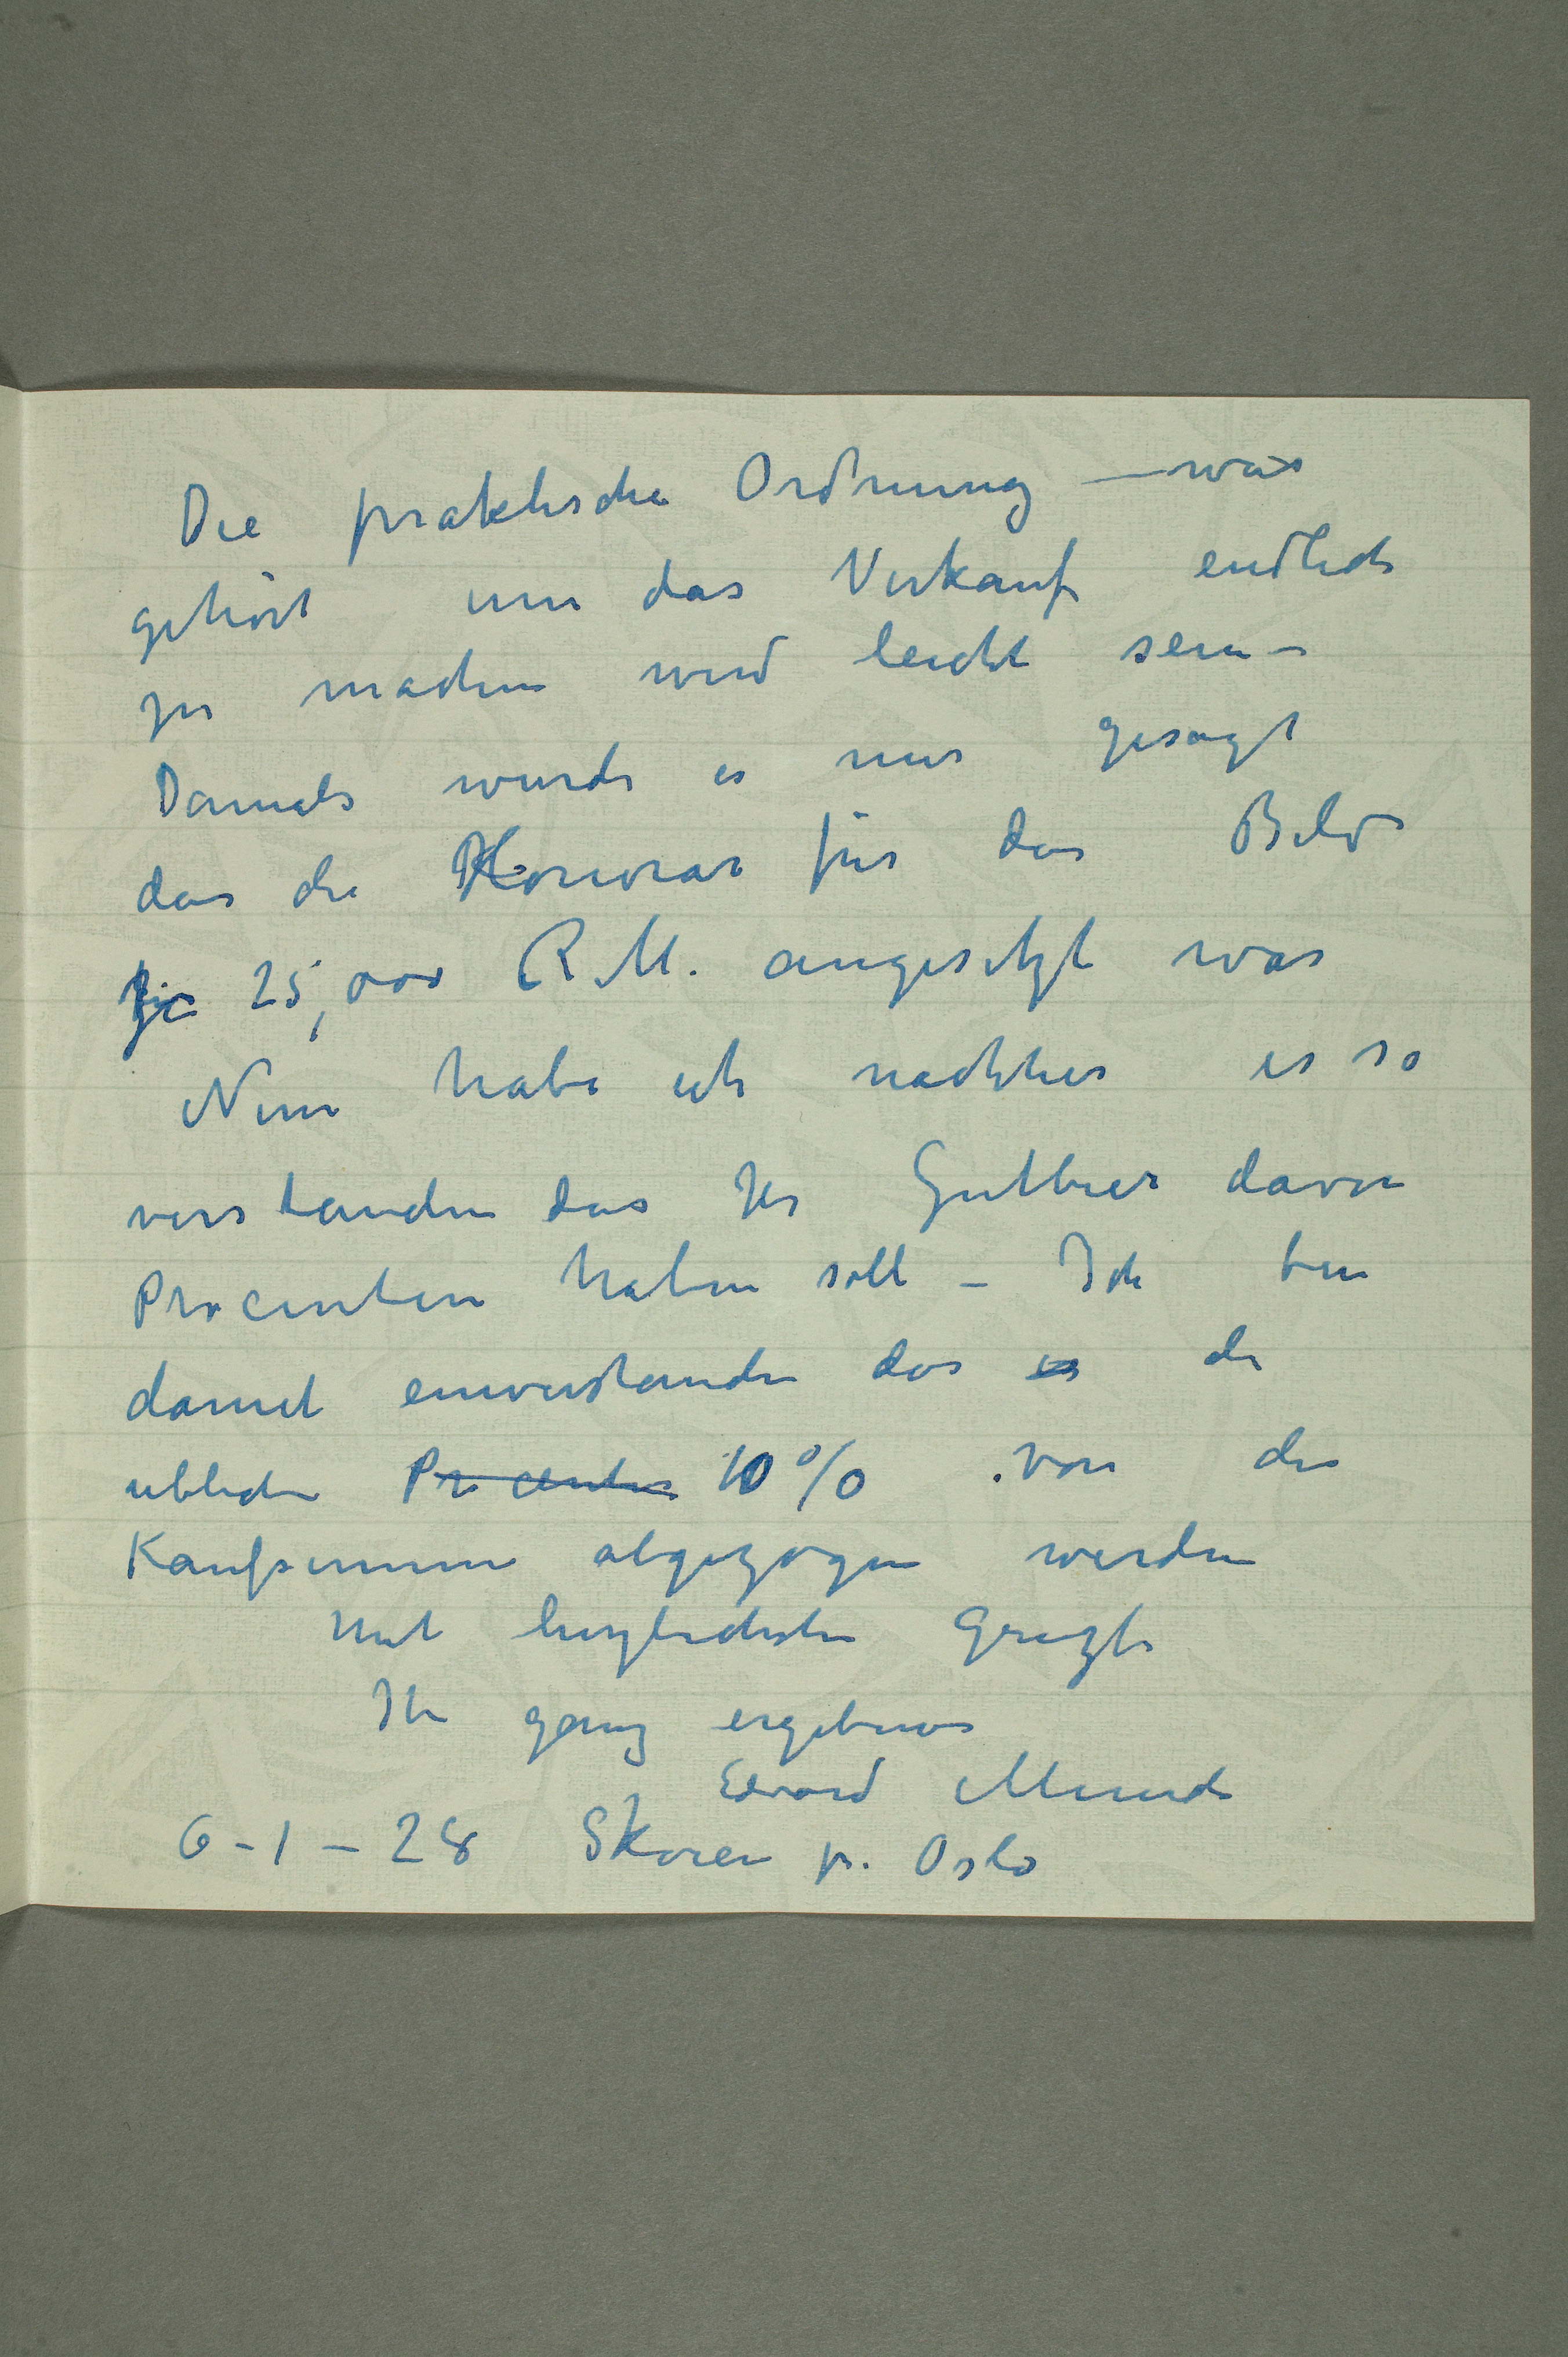 Die praktische Ordnung – was
gehört um das Verkauf endlich
zu machen wird leicht sein –
Damals wurde es mir gesagt
das die Honorar für das Bild
zu 25,000 R.M. angesetzt war
Nun habe ich nachher es so
verstanden das Hr Gutbier davon
Procenten haben soll – Ich bin
damit einverstanden das es die
ublichen Procenten 10% von die
Kaufsumme abgezogen werden
Mit herzlichsten Grüzse
Ihr ganz ergebener
Edvard Munch
6-1-28 Skøien pr. Oslo